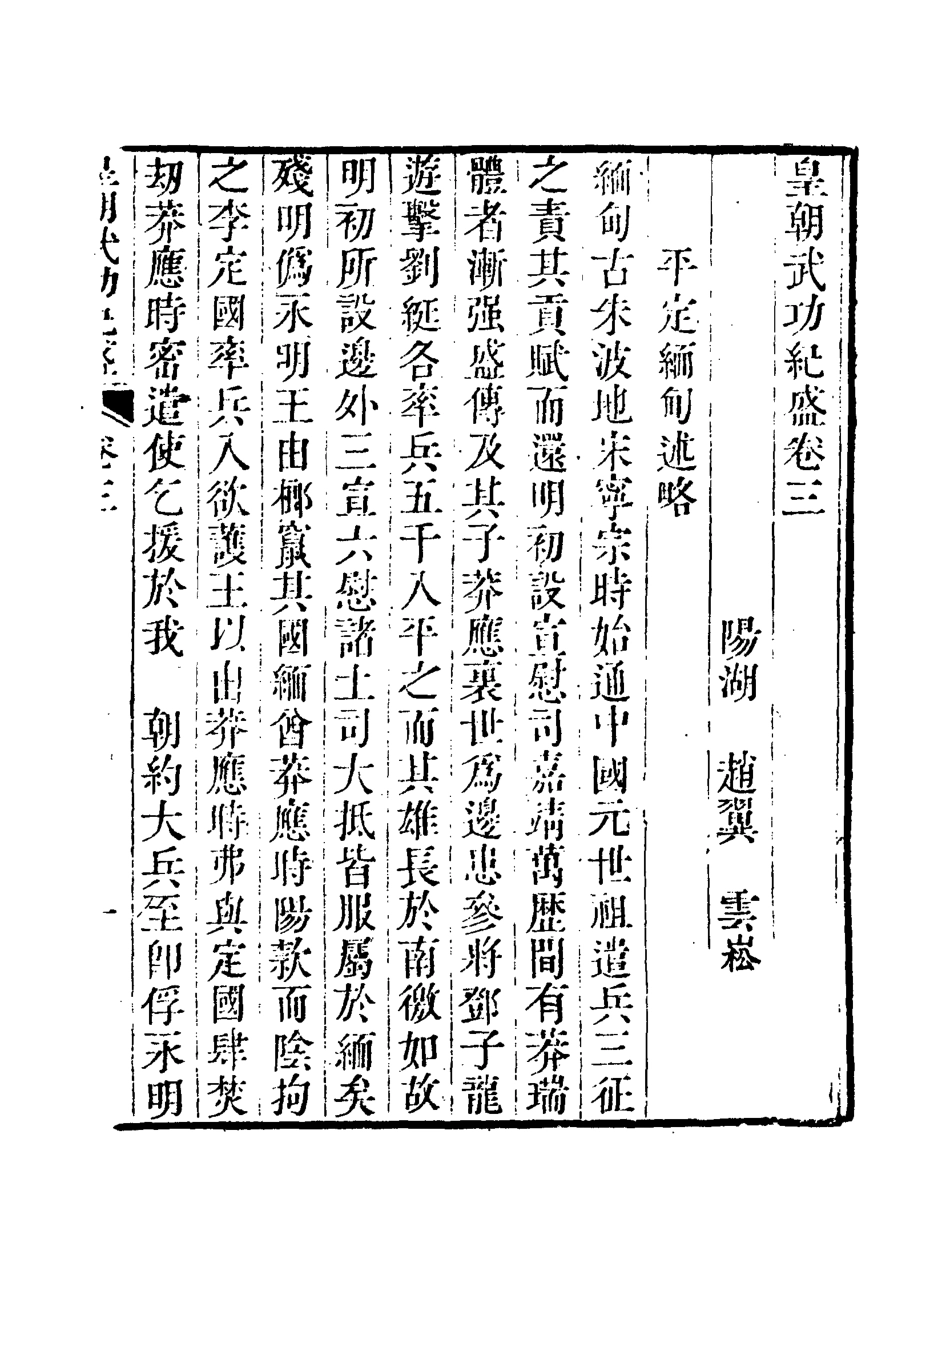 皇朝武功紀盛卷三
陽湖 趙翼 雲崧
平定緬甸述略
緬甸古朱波地宋寧宗時始通中國元世祖遣兵三征
之責其貢賦而還明初設宣慰司嘉靖萬歷間有莽瑞
體者漸强盛傳及其子莽應裏世爲邊患參將鄧子龍
遊擊劉綎各率兵五千人平之而其雄長於南徼如故
明初所設邊外三宣六慰諸土司大抵皆服屬於緬矣
殘明僞永明王由榔竄其國緬酋莽應時陽款而陰拘
之李定國率兵入欲護王以出莽應時弗與定國肆焚
劫莽應時密遣使乞援於我 朝約大兵至卽俘永明
皇朝武功紀盛 卷三 一